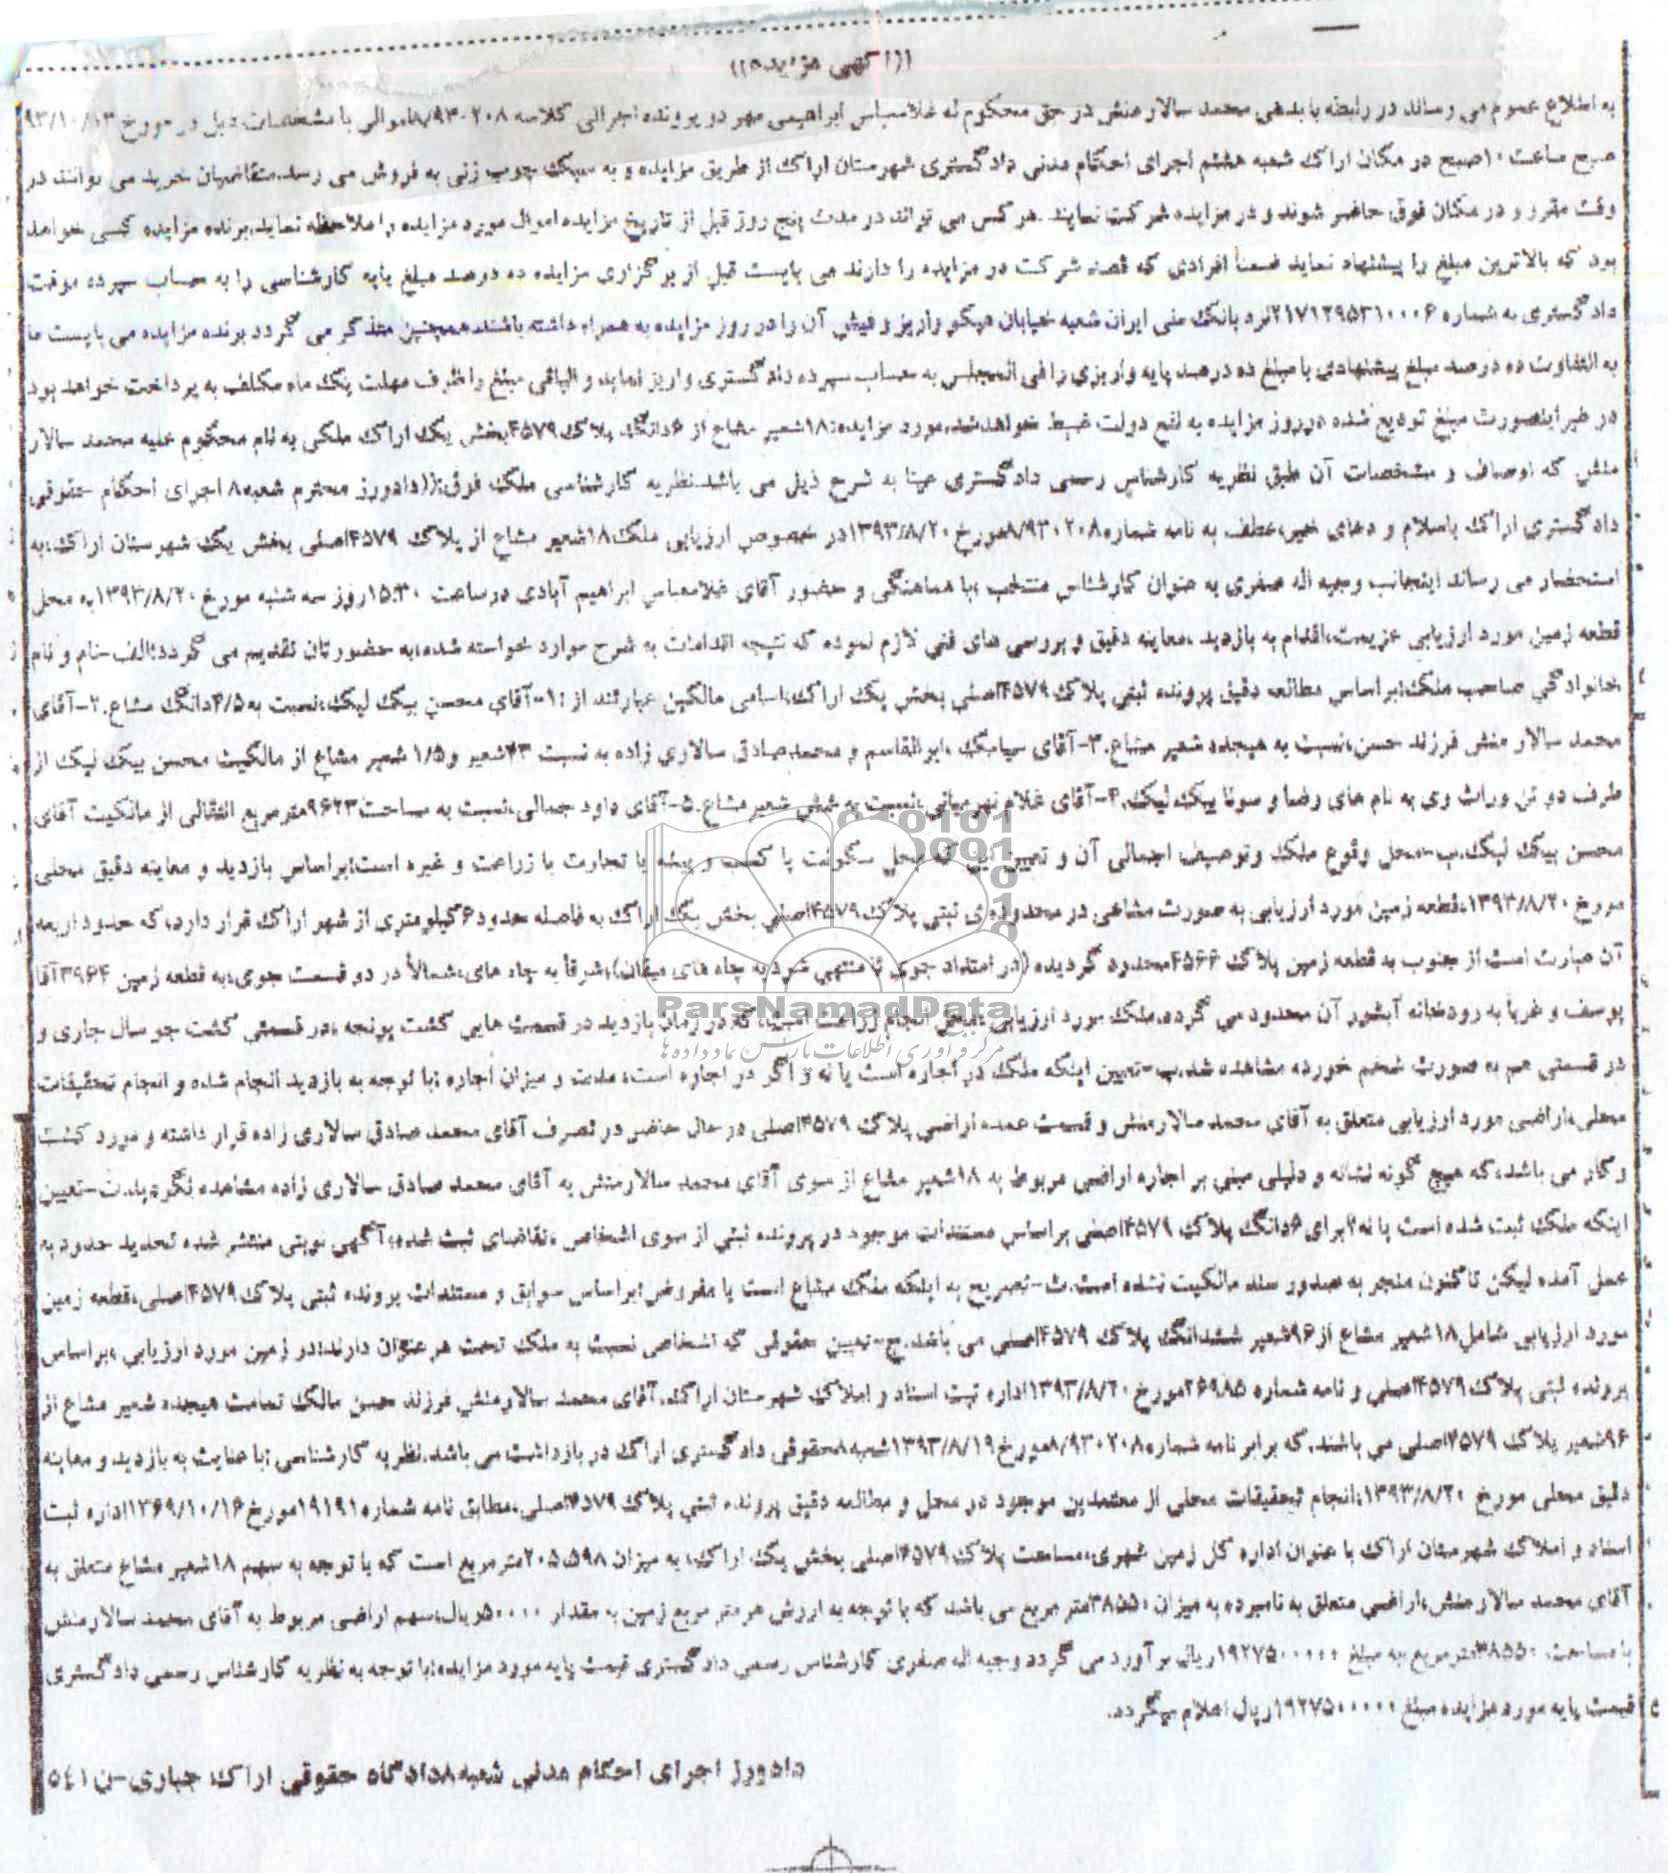 ((آگهی مزایده))
به اطلاع عموم می رساند در رابطه با بدهی محمد سالارمنش در حق محکوم له غلامعباس ابراهیمی مهر دو پرونده اجرائی کلاسه ۸/۹۳۰۲۰۸اموالی با مشخصات ذیل در مورخ ۹۳/۱۰/۱۳
صبح ساعت ۱۰صبح در مکان اراک شعبه هشتم اجرای احکام مدنی دادگستری شهرستان اراک از طریق مزایده و به سبک چوب زنی به فروش می رسد.متقاضیان خرید می توانند در
وقت مقرر و در مکان فوق حاضر شوند و در مزایده شرکت نمایند .هر کس می تواند در مدت پنج روز قبل از تاریخ مزایده اموال مورد مزایده را ملاحظه نماید.برنده مزایده کسی خواهد
بود که بالاترین مبلغ را پیشنهاد نماید ضمناً افرادی که قصد شرکت در مزایده را دارند می بایست قبل از برگزاری مزایده ده درصد مبلغ پایه کارشناسی را به حساب سپرده موقت
دادگستری به شماره ۲۱۷۱۲۹۵۳۱۰۰۰۶نزد بانک ملی ایران شعبه خیابان هپکو واریز و فیش آن را در روز مزایده به همراه داشته باشند.همچنین متذکر می گردد برنده مزایده می بایست ما
به التفاوت ده درصد مبلغ پیشنهادی با مبلغ ده درصد پایه واریزی را فی المجلس به حساب سپرده دادگستری واریز نماید و الباقی مبلغ را ظرف مهلت یک ماه مکلف به پرداخت خواهد بود
در غیر اینصورت مبلغ تودیع شده در روز مزایده به نفع دولت ضبط خواهد شد.مورد مزایده:۱۸شعیر مشاع از ۶دانگ پلاک ۴۵۷۹بخش یک اراک ملکی به نام محکوم علیه محمد سالار
منش که اوصاف و مشخصات آن طبق نظریه کارشناس رسمی دادگستری عینا به شرح ذیل می باشد.نظریه کارشناسی ملک فوق:((دادورز محترم شعبه۸ اجرای احکام حقوقی
دادگستری اراک باسلام و دعای خیر،عطف به نامه شماره۸/۹۳۰۲۰۸مورخ۱۳۹۳/۸/۲۰در خصوص ارزیابی ملک۱۸شعیر مشاع از پلاک ۴۵۷۹اصلی بخش یک شهرستان اراک،به
استحضار می رساند اینجانب وجیه اله صفری به عنوان کارشناس منتخب ،با هماهنگی و حضور آقای غلامعباس ابراهیم آبادی درساعت ۱۵:۳۰روز سه شنبه مورخ ۱۳۹۳/۸/۲۰به محل
قطعه زمین مورد ارزیابی عزیمت،اقدام به بازدید ،معاینه دقیق و بررسی های فنی لازم نموده که نتیجه اقدامات به شرح موارد خواسته شده،به حضورتان تقدیم می گردد:الف-نام و نام
خانوادگی صاحب ملک:براساس مطالعه دقیق پرونده ثبتی پلاک ۴۵۷۹اصلی بخش یک اراک،اسامی مالکین عبارتند از :۱-آقای محسن بیک لیک،نسبت به ۴/۵دانگ مشاع.۲-آقای
محمد سالار منش فرزند حسن،نسبت به هیجده شعیر مشاع.۳-آقای سیامک ،ابوالقاسم و محمدصادق سالاری زاده به نسبت ۴۳شعیر و۱/۵ شعیر مشاع از مالکیت محسن بیک لیک از
طرف دو تن وراث وی به نام های رضا و سونا بیک لیک.۴-آقای غلام نهرمیانی،نسبت به شش شعیرمشاع.۵-آقای داود جمالی،نسبت به مساحت ۹۶۲۳مترمربع انتقالی از مالکیت آقای
محسن بیک لیک.ب-محل وقوع ملک وتوصیف اجمالی آن و تعیین این که محل سکونت یا کسب و پیشه یا تجارت یا زراعت و غیره است:براساس بازدید و معاینه دقیق محلی
مورخ ۱۳۹۳/۸/۲۰،قطعه زمین مورد ارزیابی به صورت مشاعی در محدوده ی ثبتی پلاک ۴۵۷۹اصلی بخش یک اراک به فاصله حدود ۶کیلومتری از شهر اراک قرار دارد،که حدود اربعه
آن عبارت است از جنوب به قطعه زمین پلاک ۴۵۶۶محدود گردیده (در امتداد جوی تا منتهی شود به چاه های میقان)،شرقاً به چاه های،شمالاً در دو قسمت جوی،به قطعه زمین ۳۹۶۴آقا
یوسف و غرباً به رودخانه آبشور آن محدود می گردد.ملک مورد ارزیابی ،محل انجام زراعت است،که در زمان بازدید در قسمت هایی کشت یونجه ،در قسمتی کشت جو سال جاری و
در قسمتی هم به صورت شخم خورده مشاهده شد.پ-تعیین اینکه ملک در اجاره است یا نه و اگر در اجاره است، مدت و میزان اجاره :با توجه به بازدید انجام شده و انجام تحقیقات
محلی،اراضی مورد ارزیابی متعلق به آقای محمد سالارمنش و قسمت عمده اراضی پلاک ۴۵۷۹اصلی در حال حاضر در تصرف آقای محمد صادق سالاری زاده قرار داشته و مورد کشت
وکار می باشد،که هیچ گونه نشانه و دلیلی مبنی بر اجاره اراضی مربوط به ۱۸شعیر مشاع از سوی آقای محمد سالارمنش به آقای محمد صادق سالاری زاده مشاهده نگردید.ت-تعیین
اینکه ملک ثبت شده است یا نه؟برای ۶دانگ پلاک ۴۵۷۹اصلی براساس مستندات موجود در پرونده ثبتی از سوی اشخاص ،تقاضای ثبت شده،آگهی نوبتی منتشر شده تحدید حدود به
عمل آمده لیکن تاکنون منجر به صدور سند مالکیت نشده است.ث-تصریح به اینکه ملک مشاع است یا مفروض:براساس سوابق و مستندات پرونده ثبتی پلاک ۴۵۷۹اصلی،قطعه زمین
مورد ارزیابی شامل۱۸شعیر مشاع از۹۶شعیر ششدانگ پلاک ۴۵۷۹اصلی می باشد.ج-تعیین حقوقی که اشخاص نسبت به ملک تحت هر عنوان دارند:در زمین مورد ارزیابی ،براساس
پرونده ثبتی پلاک ۴۵۷۹اصلی و نامه شماره ۲۶۹۸۵مورخ۱۳۹۳/۸/۲۰اداره ثبت اسناد و املاک شهرستان اراک.آقای محمد سالارمنش فرزند حسن مالک تمامت هیجده شعیر مشاع از
۹۶شعیر پلاک ۴۵۷۹اصلی می باشند.که برابر نامه شماره۸/۹۳۰۲۰۸مورخ۱۳۹۳/۸/۱۹شعبه۸حقوقی دادگستری اراک در بازداشت می باشد.نظریه کارشناسی :با عنایت به بازدید و معاینه
دقیق محلی مورخ ۱۳۹۳/۸/۲۰،انجام تحقیقات محلی از معتمدین موجود در محل و مطالعه دقیق پرونده ثبتی پلاک ۴۵۷۹اصلی،مطابق نامه شماره ۱۹۱۹۱مورخ۱۳۶۹/۱۰/۱۶اداره ثبت
اسناد و املاک شهرستان اراک با عنوان اداره کل زمین شهری،مساحت پلاک ۴۵۷۹اصلی بخش یک اراک، به میزان ۲۰۵،۵۹۸مترمربع است که با توجه به سهم ۱۸شعیر مشاع متعلق به
آقای محمد سالارمنش،اراضی متعلق به نامبرده به میزان ۳۸۵۵۰متر مربع می باشد که با توجه به ارزش هر متر مربع زمین به مقدار ۵۰۰۰۰ریال،سهم اراضی مربوط به آقای محمد سالارمنش
با مساحت ۳۸۵۵۰مترمربع به مبلغ ۱۹۲۷۵۰۰۰۰۰ریال برآورد می گردد وجیه اله صفری کارشناس رسمی دادگستری قیمت پایه مورد مزایده:با توجه به نظریه کارشناس رسمی دادگستری
قیمت پایه مورد مزایده مبلغ ۱۹۲۷۵۰۰۰۰۰ریال اعلام میگردد.
دادورز اجرای احکام مدنی شعبه۸دادگاه حقوقی اراک جباری-ن۵۴۱
010101
0001
ParsNamadData
مرکز فرآوری اطلاعات پارس نماد داده ها